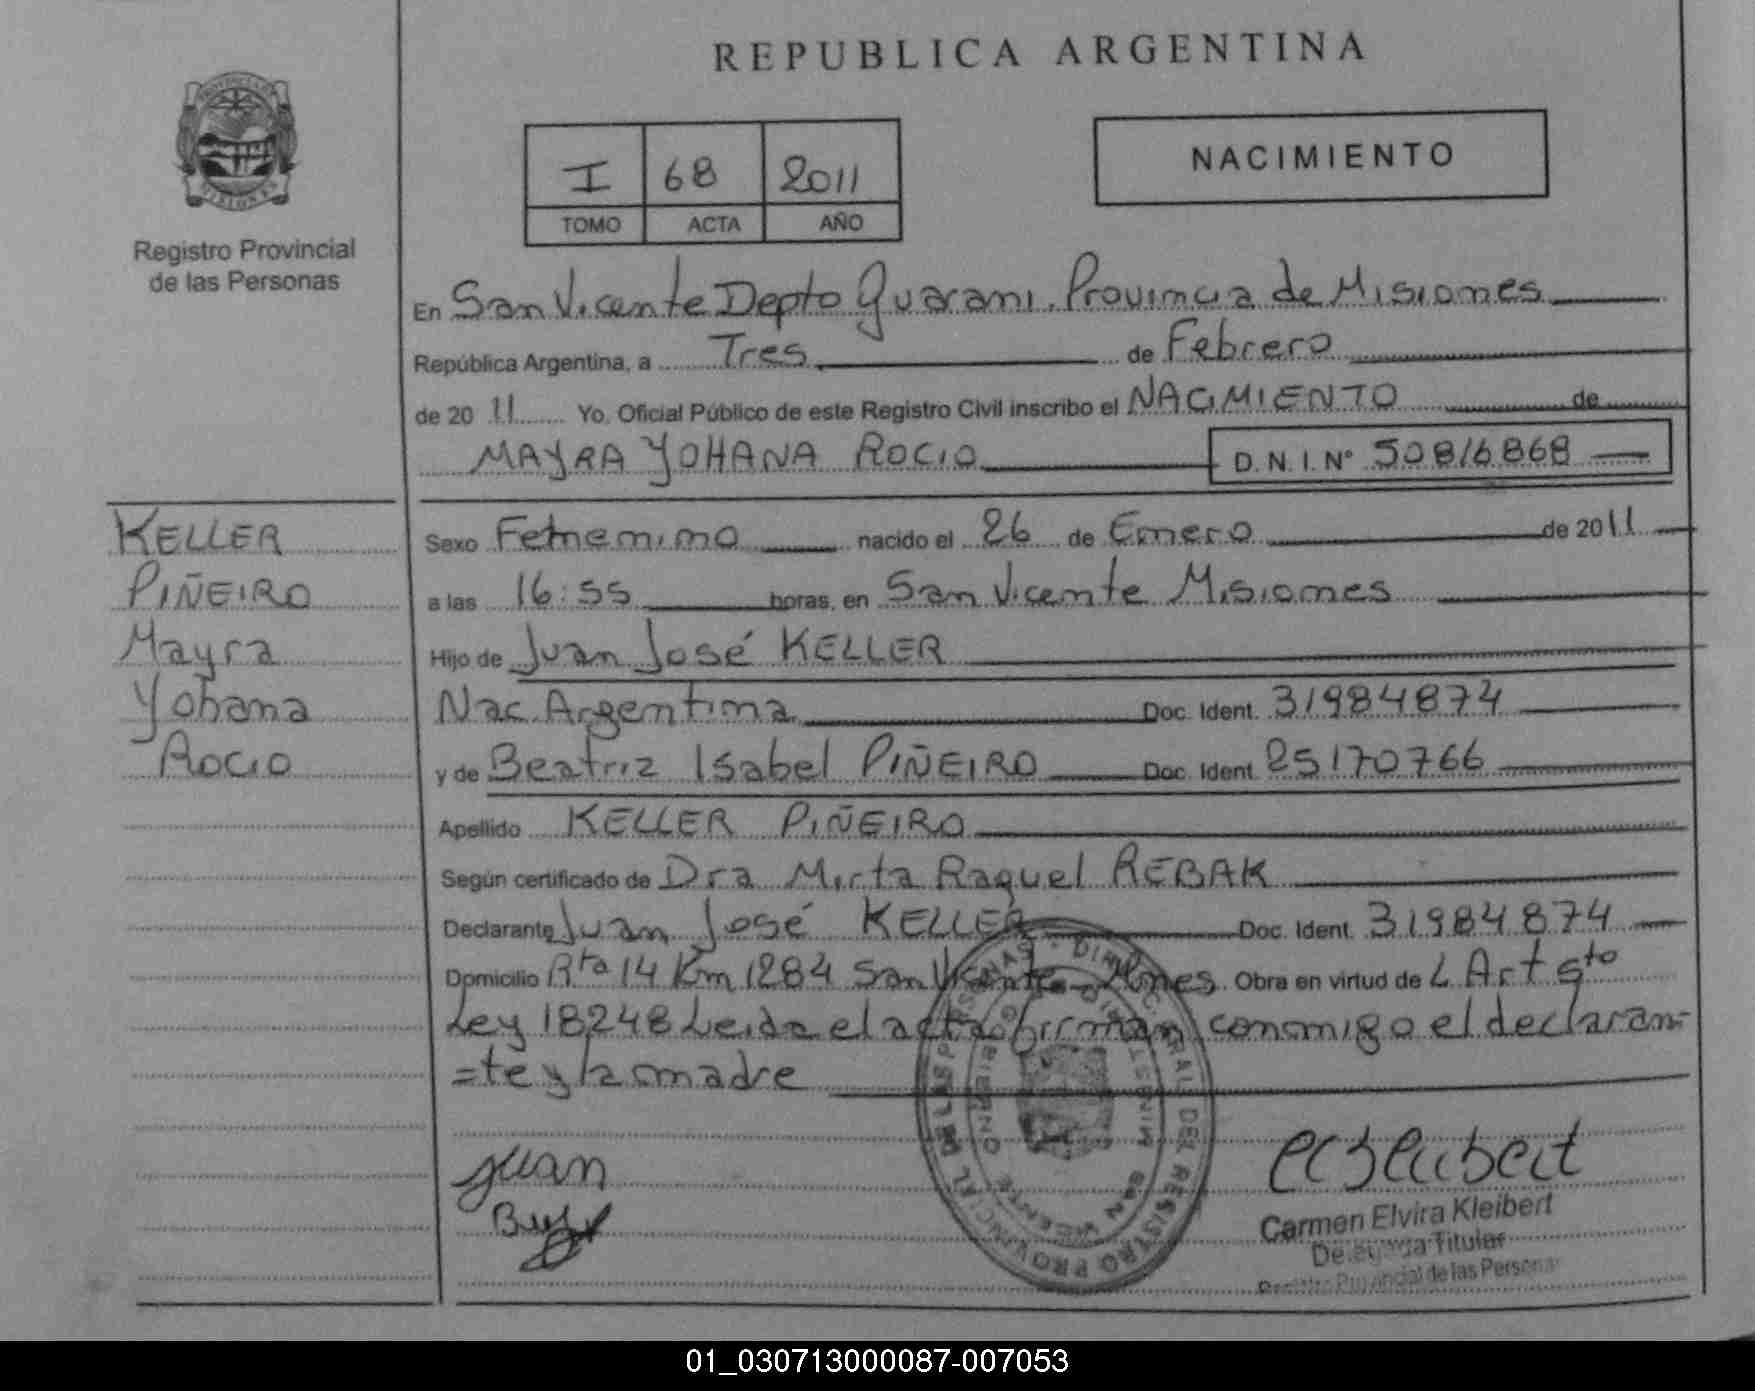 REPUBLICA ARGENTINA
PROVINCIA DE
MISIONES
Registro Provincial
de las Personas
I 68 2011
TOMO ACTA AÑO
NACIMIENTO
En San Vicente Depto Guarani. Provincia de Misiones
República Argentina, a Tres de Febrero
de 20 11 Yo, Oficial Público de este Registro Civil inscribo el NACIMIENTO de
MAYRA YOHANA ROCIO D.N.I.Nº 50816868
KELLER
PIÑEIRO
Mayra
Yohana
Rocio
Sexo Femenino nacido el 26 de Enero de 2011
a las 16:55 horas, en San Vicente Misiones
Hijo de Juan José KELLER
Nac. Argentina Doc. Ident. 31984874
y de Beatriz Isabel PIÑEIRO Doc. Ident. 25170766
Apellido KELLER PIÑEIRO
Según certificado de Dra Mirta Raquel REBAK
Declarante Juan José KELLER Doc. Ident. 31984874
Domicilio Rta 14 Km 1284 San Vicente Mnes. Obra en virtud de L Art 5to
Ley 18248 Leida el acta firman conmigo el declaran-
=te y la madre
Juan
Carmen Elvira Kleibert
Delegada Titular
Registro Provincial de las Personas
01_030713000087-007053